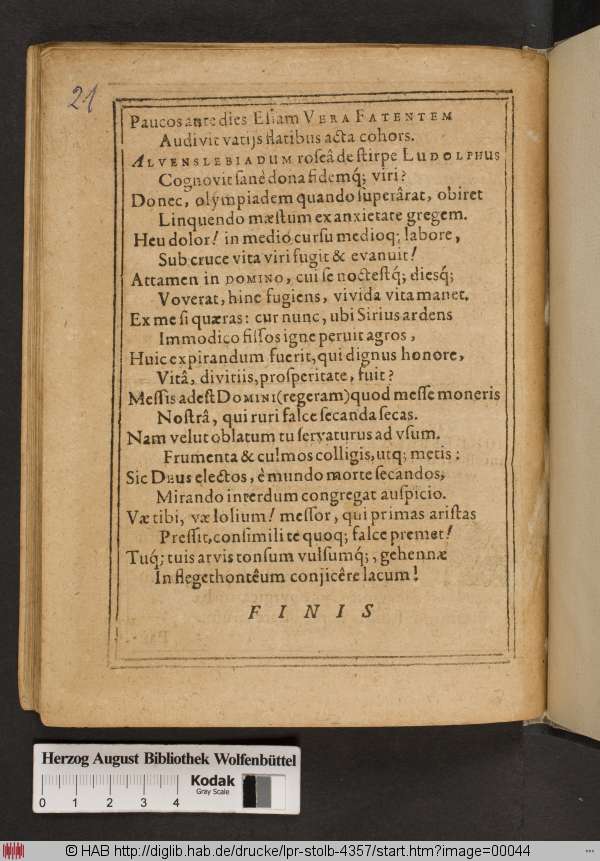 21
Paucos ante dies Esiam VERA FATENTEM
Audivit vatijs flatibus acta cohors.
ALVENSLEBIADUM roseâ de stirpe LUDOLPHUS
Cognovit sanè dona fidemq́; viri?
Donec, olympiadem quando superârat, obiret
Linquendo mæstum ex anxietate gregem.
Heu dolor! in medio cursu medioq; labore,
Sub cruce vita viri fugit & evanuit!
Attamen in DOMINO, cui se noctesq́; diesq́;
Voverat, hinc fugiens, vivida vita manet.
Ex me si quæras: cur nunc, ubi Sirius ardens
Immodico fissos igne peruit agros,
Huic expirandum fuerit, qui dignus honore,
Vitâ, divitiis, prosperitate, fuit?
Messis adest DOMINI (regeram) quod messe moneris
Nostrâ, qui ruri falce secanda secas.
Nam velut oblatum tu servaturus ad vsum.
Frumenta & culmos colligis, utq; metis:
Sic Deus electos, è mundo morte secandos,
Mirando interdum congregat auspicio.
Væ tibi, væ lolium! messor, qui primas aristas
Pressit, consimili te quoq; falce premet!
Tuq; tuis arvis tonsum vulsumq́;, gehennæ
In flegethontêum conjicêre lacum!
FINIS
Herzog August Bibliothek Wolfenbüttel
0 1 2 3 4
Kodak
Gray Scale
© HAB http://diglib.hab.de/drucke/lpr-stolb-4357/start.htm?image=00044